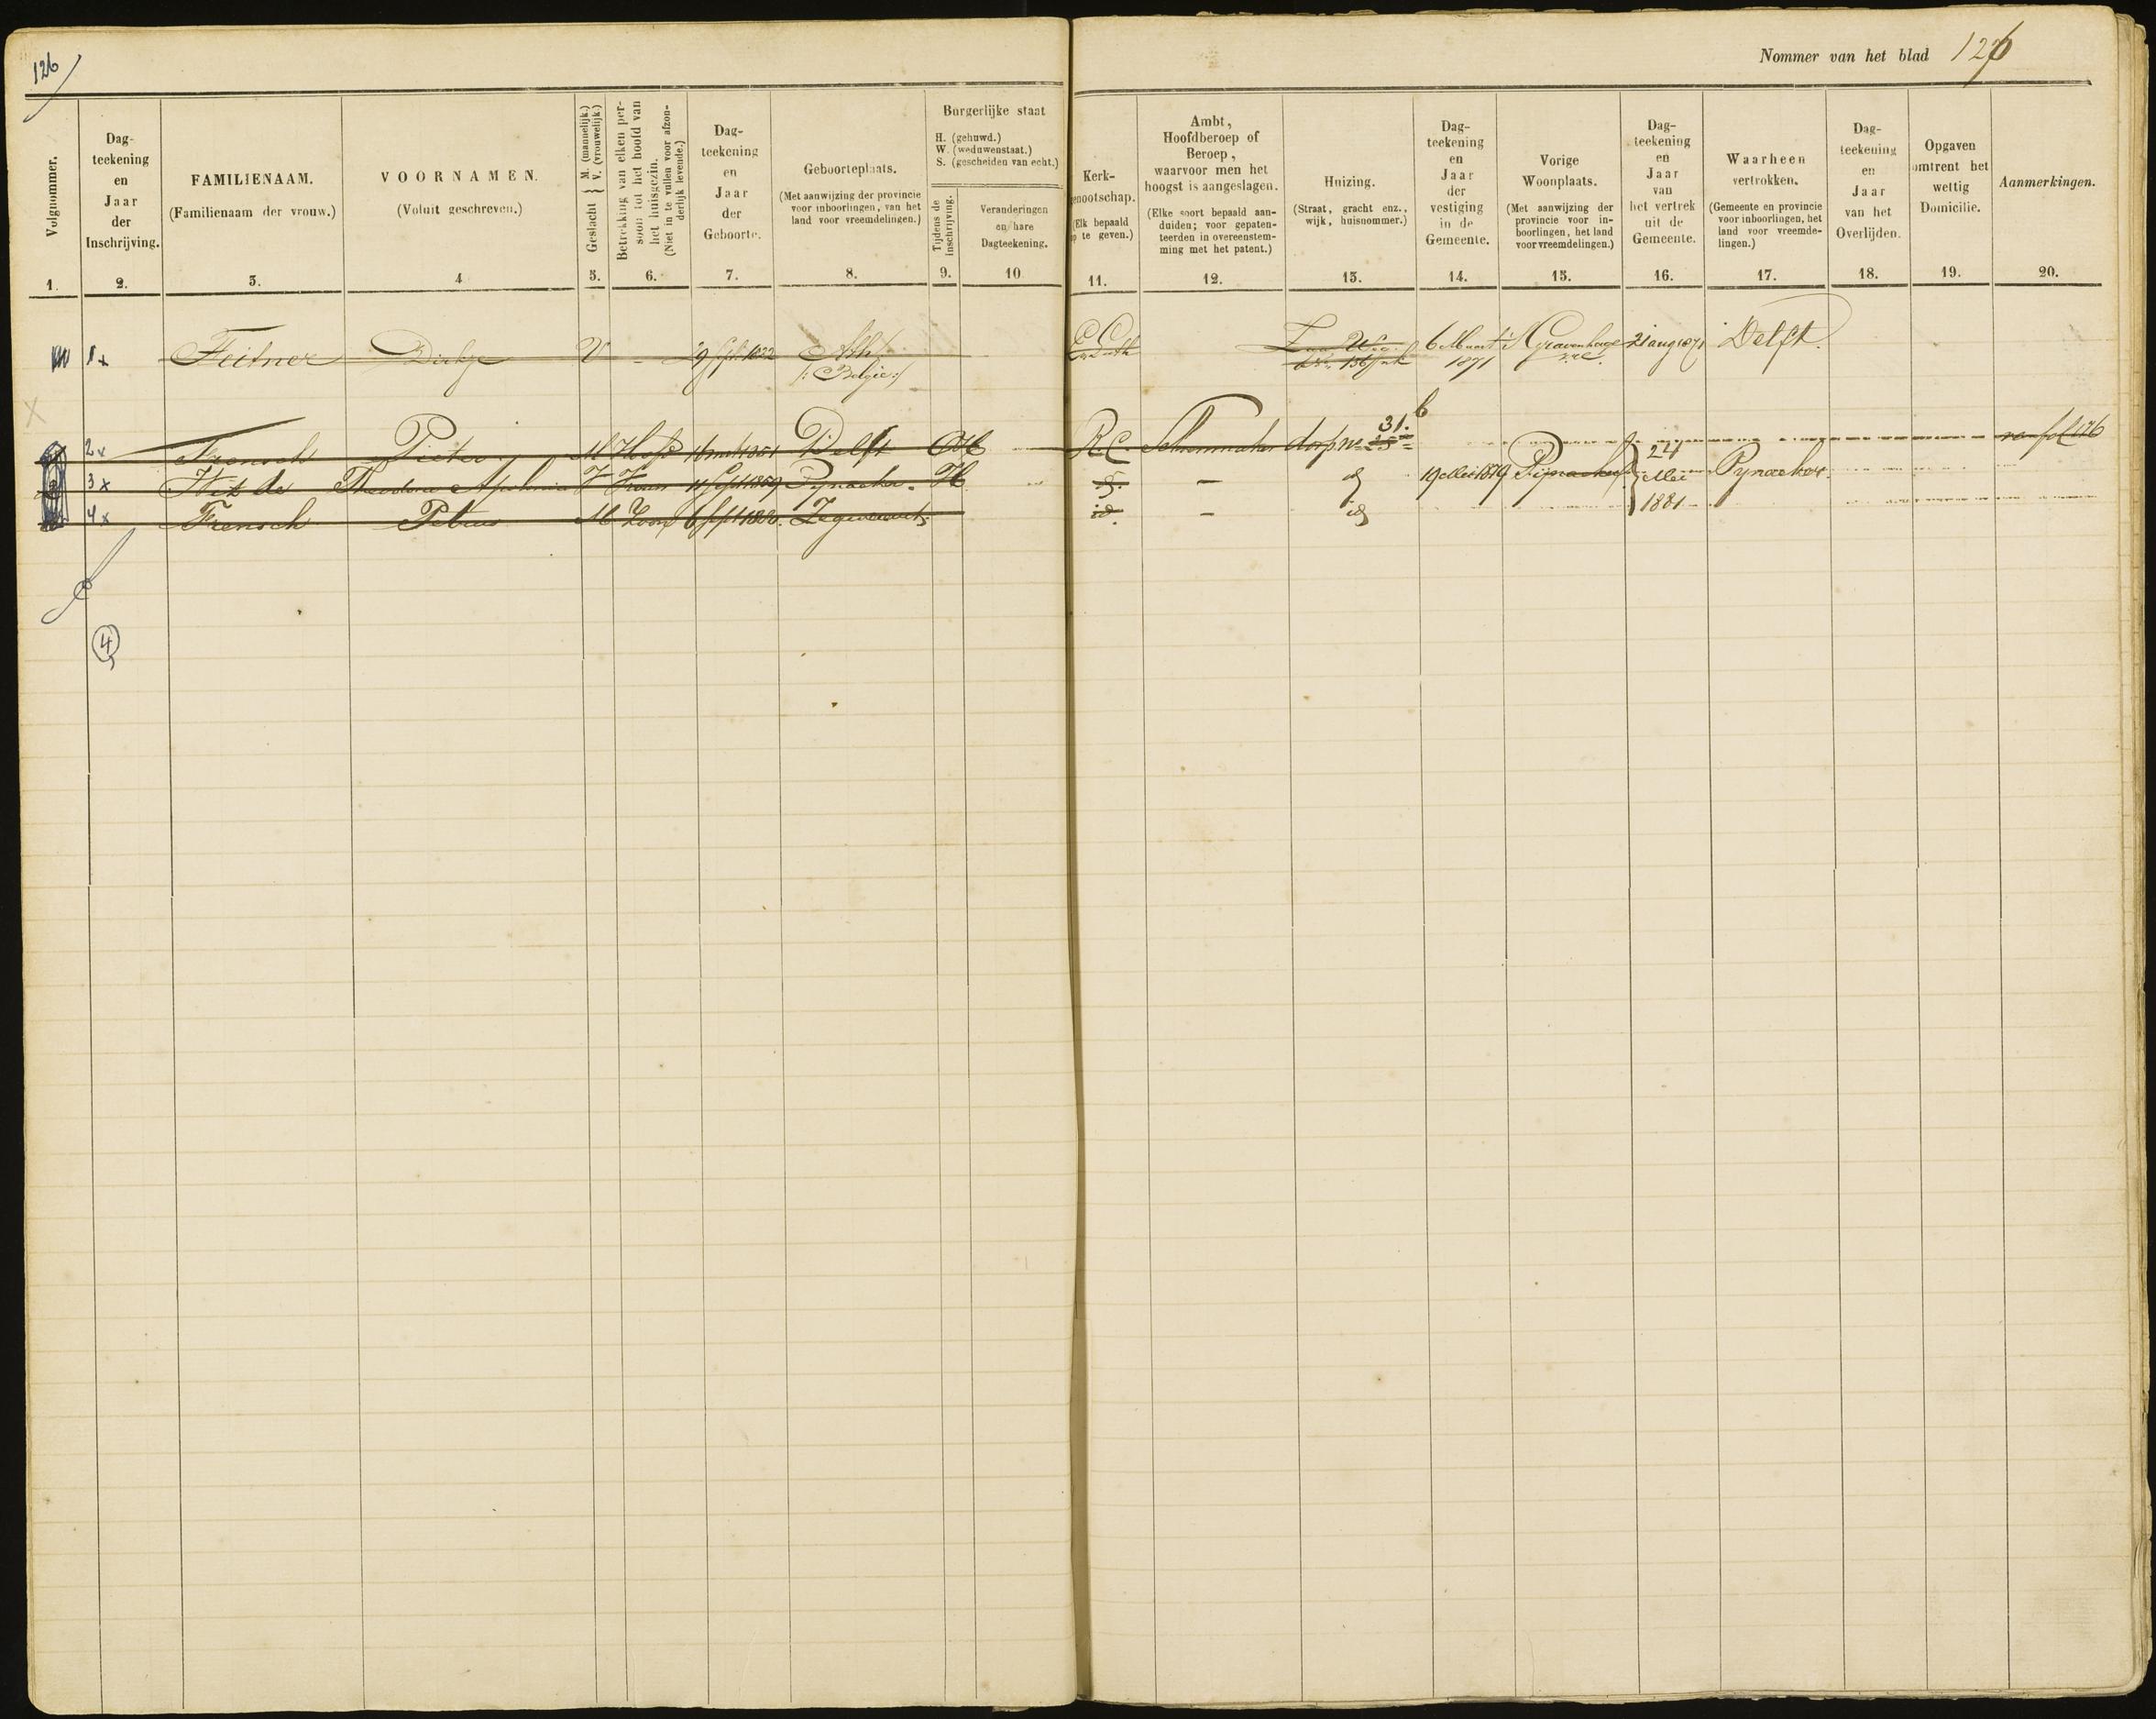 126
Nommer van het blad 126
Volgnommer.
1.
Dag-
teekening
en
Jaar
der
Inschrijving.
2.
FAMILIENAAM.
(Familienaam der vrouw.)
3.
VOORNAMEN.
(Voluit geschreven.)
4
Geslacht } M. (mannelijk.)
V. (vrouwelijk.)
5.
Betrekking van elken per-
soon tot het hoofd van
het huisgezin.
(Niet in te vullen voor afzon-
derlijk levende.)
6.
Dag-
teekening
en
Jaar
der
Geboorte.
7.
Geboorteplaats.
(Met aanwijzing der provincie
voor inboorlingen, van het
land voor vreemdelingen.)
8.
Burgerlijke staat
H. (gehuwd.)
W. (weduwenstaat.)
S. (gescheiden van echt.)
Tijdens de
inschrijving.
9.
Veranderingen
en hare
Dagteekening.
10
Kerk-
genootschap.
(Elk bepaald
op te geven.)
11.
Ambt,
Hoofdberoep of
Beroep,
waarvoor men het
hoogst is aangeslagen.
(Elke soort bepaald aan-
duiden; voor gepaten-
teerden in overeenstem-
ming met het patent.)
12.
Huizing.
(Straat, gracht enz.,
wijk, huisnommer.)
13.
Dag-
teekening
en
Jaar
der
vestiging
in de
Gemeente.
14.
Vorige
Woonplaats.
(Met aanwijzing der
provincie voor in-
boorlingen, het land
voor vreemdelingen.)
15.
Dag-
teekening
en
Jaar
van
het vertrek
uit de
Gemeente.
16.
Waarheen
vertrokken.
(Gemeente en provincie
voor inboorlingen, het
land voor vreemde-
lingen.)
17.
Dag-
teekening
en
Jaar
van het
Overlijden.
18.
Opgaven
omtrent het
wettig
Domicilie.
19.
Aanmerkingen.
20.
1x Feitner Dirkje V 6 Maart 'S Gravenhage 21 aug 1871 Delft.
/: Belgie :/ 1871
2x Frensch Pieter M Hoofd Delft R.C. Schoenmaker dorp No 31. b van fol 176
3x Wit de Theodora Apolonia V Vrouw 11 Sept 1859 Pynacker. H id. — id 19 Mei 1879 Pijnacker 24 Mei Pynacker
4x Frensch Petrus M Zoon 6 Sept 1880. Zegwaart id. — id 1881
4